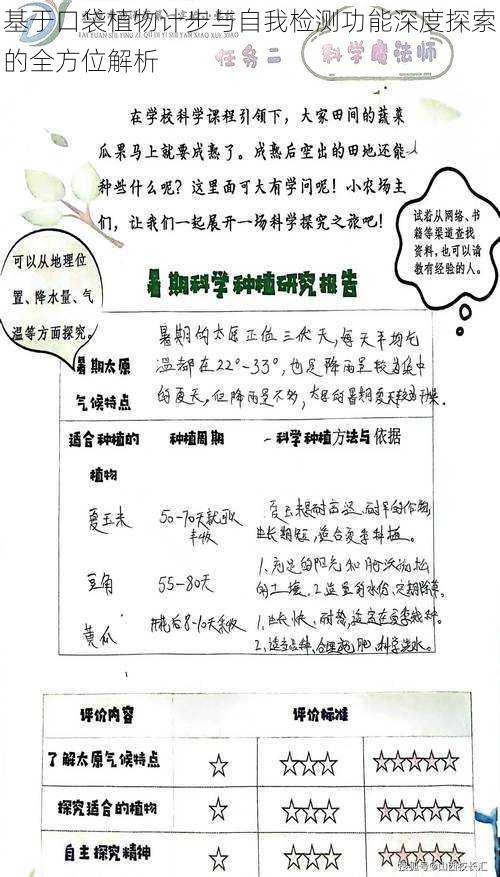 基于口袋植物计步与自我检测功能深度探索
的全方位解析
任务二 科学魔法师
在学校科学课程引领下，大家田间的蔬菜
瓜果马上就要成熟了。成熟后空出的田地还能
种些什么呢？这里面可大有学问呢！小农场主
们，让我们一起展开一场科学探究之旅吧！
试着从网络、书
籍等渠道查找
资料，也可以请
教有经验的人。
可以从地理位
置、降水量、气
温等方面探究。
暑期科学种植研究报告
暑期太原
气候特点
暑期的太原正值三伏天，每天平均气
温都在22°-33°，也是降雨量较为集中
的夏天，但降雨量不多，太原的暑期夏天较为干燥。
适合种植的
植物
种植周期
科学种植方法与依据
夏玉米
50-70天就可以
丰收
生长期短，适合夏季种植。
豆角
55-80天
1、充足的阳光和肥沃疏松
的土壤。2、适量的水份，定期除草。
黄瓜
开花后8-10天采收
1、生长快、耐热，适宜在夏季栽种。
2、适当品种、合理施肥、科学浇水。
评价内容 评价标准
了解太原气候特点 ☆ ☆☆☆ ☆☆☆☆☆
探究适合的植物 ☆ ☆☆☆ ☆☆☆☆☆
自主探究精神 ☆ ☆☆☆ ☆☆☆☆☆
搜狐号@山西校长汇